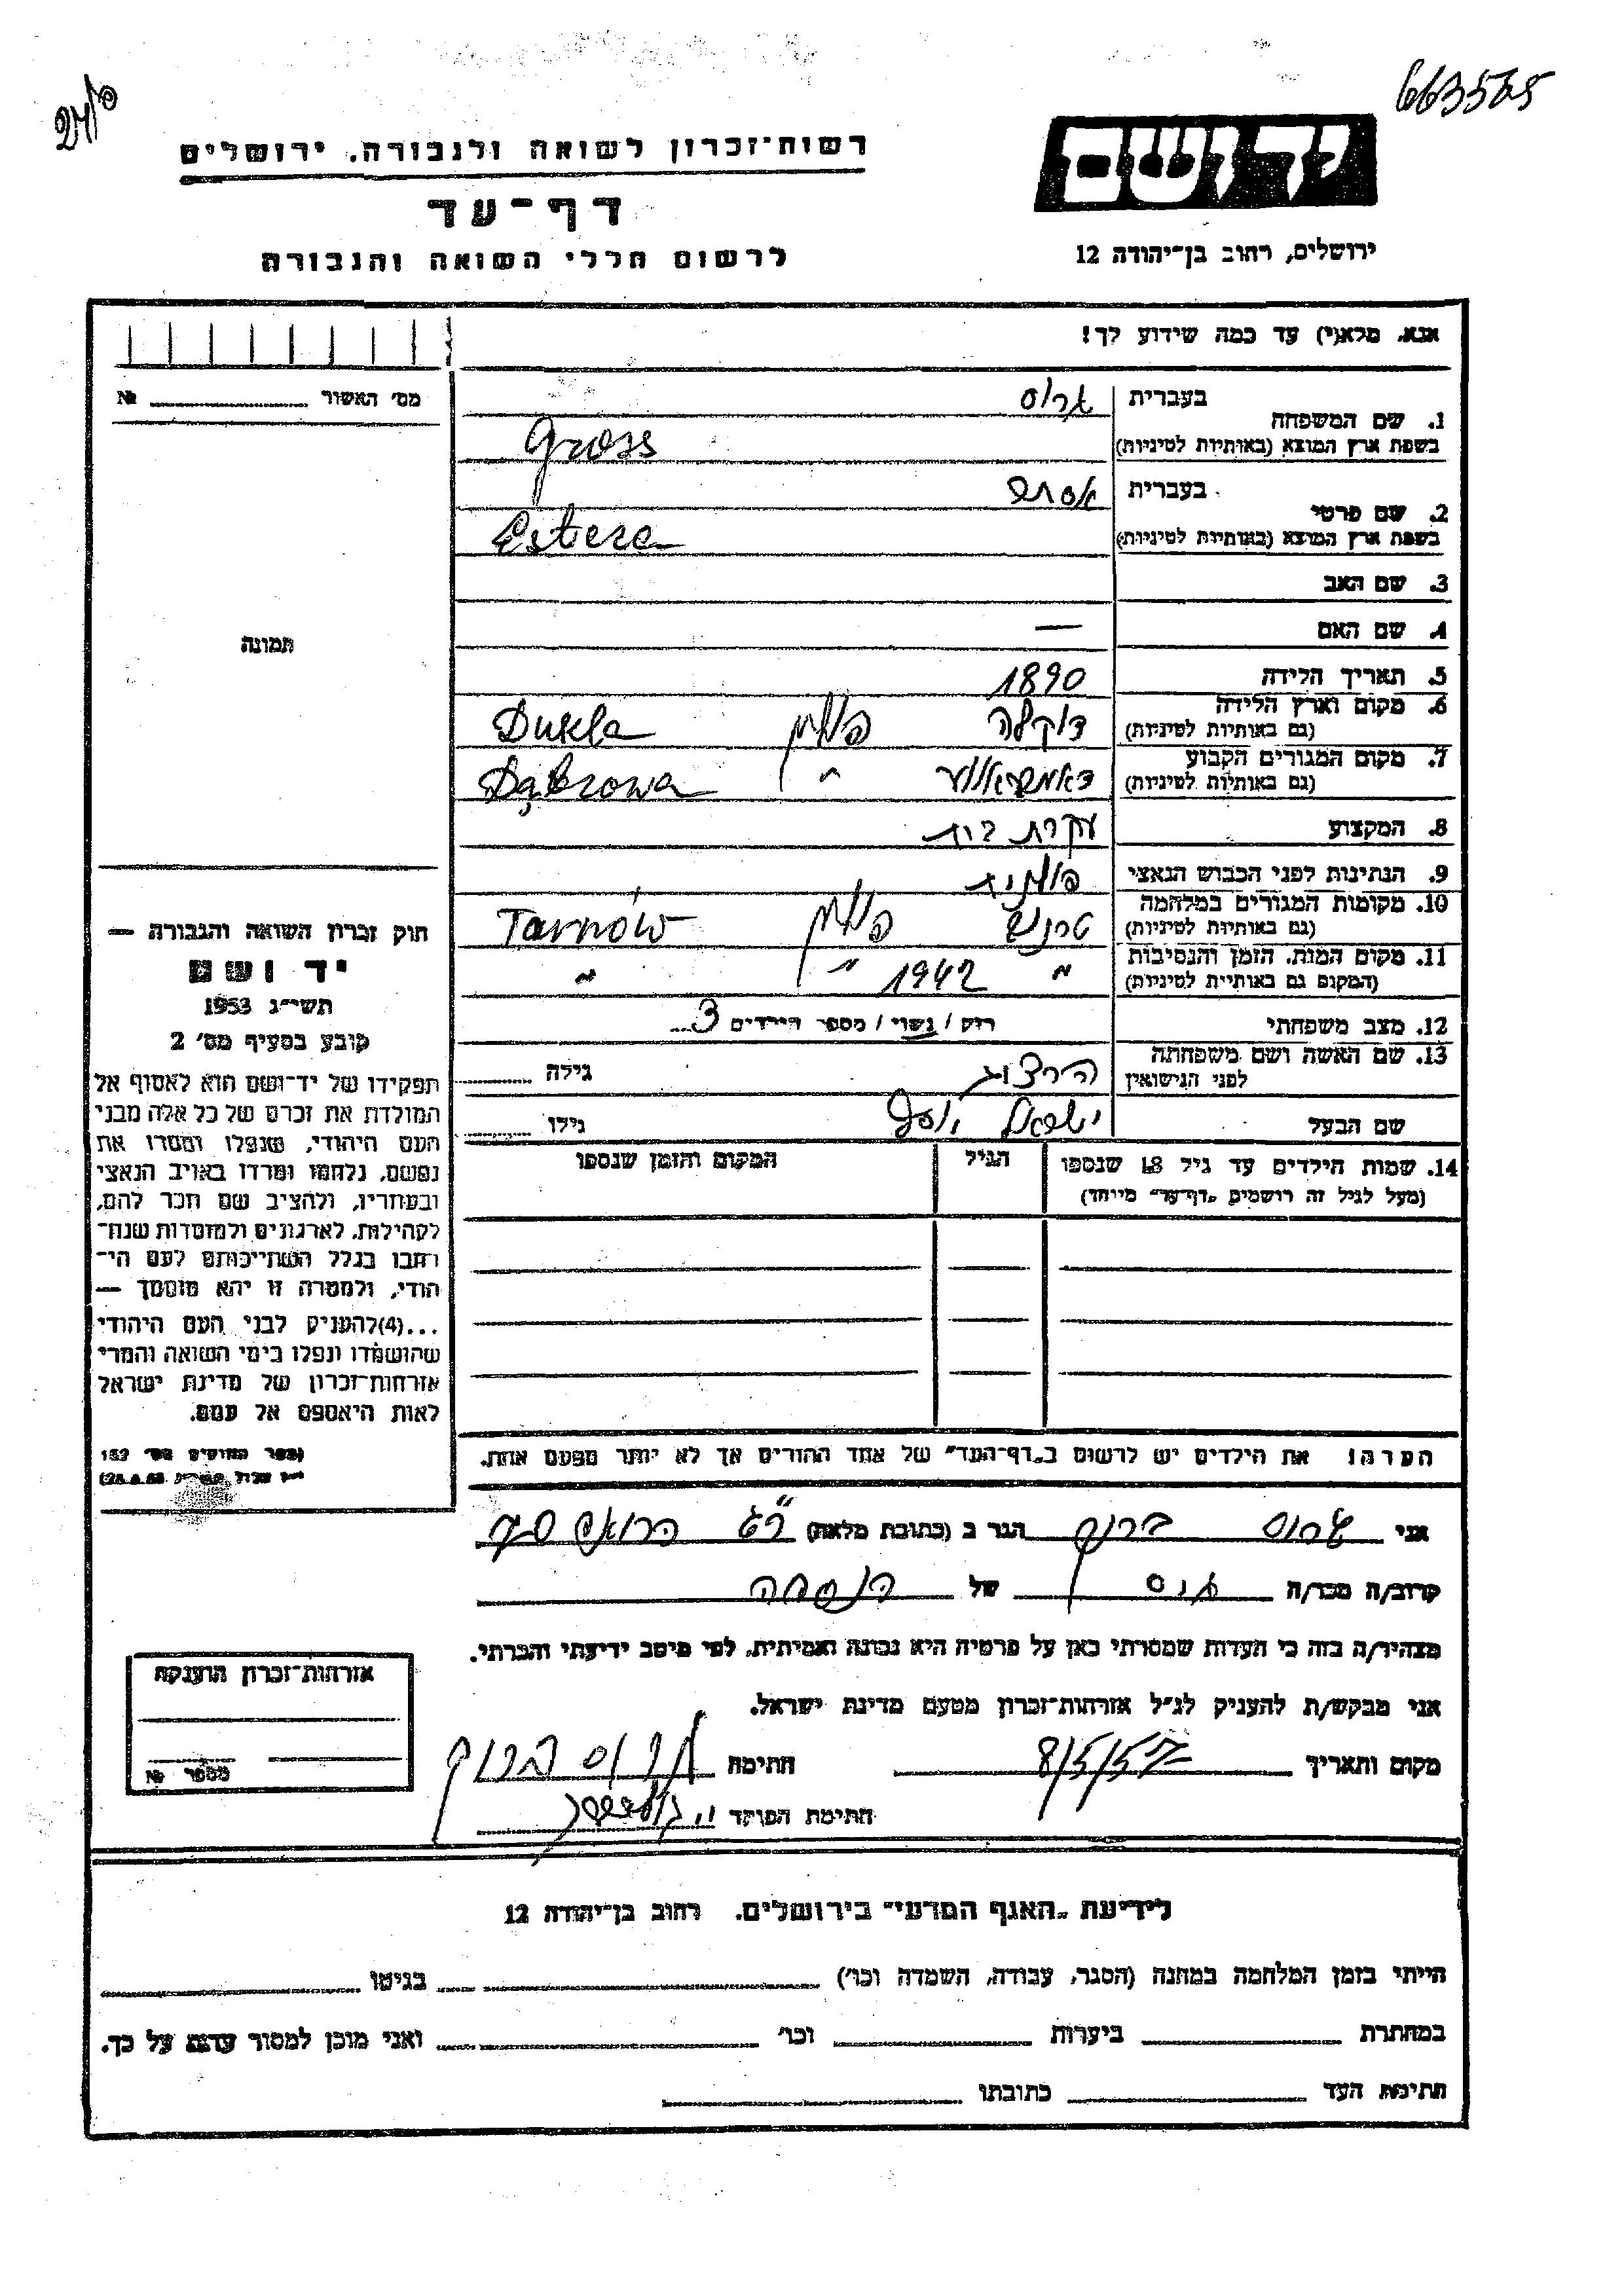 663565
רשות־זכרון לשואה ולגבורה, ירושלים
דף־עד
לרשום חללי השואה והגבורה
יד ושם
ירושלים, רחוב בן־יהודה 12
אנא, מלא(י) עד כמה שידוע לך!
מס׳ האשור № 
1. שם המשפחה בעברית גרוס
בשפת ארץ המוצא (באותיות לטיניות) Gross
2. שם פרטי בעברית אסתר
בשפת ארץ המוצא (באותיות לטיניות) Estera
3. שם האב
4. שם האם —
תמונה
5. תאריך הלידה 1890
6. מקום וארץ הלידה (גם באותיות לטיניות) דוקלה פולין Dukla
7. מקום המגורים הקבוע (גם באותיות לטיניות) דאמבראווע " Dąbrowa
8. המקצוע עקרת בית
9. הנתינות לפני הכבוש הנאצי פולנית
10. מקומות המגורים במלחמה (גם באותיות לטיניות) טרנוב פולין Tarnów
11. מקום המות, הזמן והנסיבות (המקום גם באותיות לטיניות) " 1942 " "
12. מצב משפחתי רוק / נשוי / מספר הילדים 3
13. שם האשה ושם משפחתה לפני הנישואין הרצוג גילה
שם הבעל ישראל יוסף גילו
14. שמות הילדים עד גיל 18 שנספו הגיל המקום והזמן שנספו
(מעל לגיל זה רושמים „דף־עד״ מיוחד)
חוק זכרון השואה והגבורה —
יד ושם
תשי״ג 1953
קובע בסעיף מס׳ 2
תפקידו של יד־ושם הוא לאסוף אל
המולדת את זכרם של כל אלה מבני
העם היהודי, שנפלו ומסרו את
נפשם, נלחמו ומרדו באויב הנאצי
ובעוזריו, ולהציב שם וזכר להם,
לקהילות, לארגונים ולמוסדות שנח־
רבו בגלל השתייכותם לעם הי־
הודי, ולמטרה זו יהא מוסמך —
...(4)להעניק לבני העם היהודי
שהושמדו ונפלו בימי השואה והמרי
אזרחות־זכרון של מדינת ישראל
לאות היאספם אל עמם.
(ספר החוקים מס׳ 132
הערה: את הילדים יש לרשום ב„דף־העד״ של אחד ההורים אך לא יותר מפעם אחת.
אני גרוס ברוך הגר ב (כתובת מלאה)
קרוב/ה מכר/ה של הנספה
מצהיר/ה בזה כי העדות שמסרתי כאן על פרטיה היא נכונה ואמיתית, לפי מיטב ידיעתי והכרתי.
אני מבקש/ת להעניק לנ״ל אזרחות־זכרון מטעם מדינת ישראל.
מקום ותאריך 8/5/57 חתימה גרוס ברוך
חתימת הפוקד
אזרחות־זכרון הוענקה
מספר №
לידיעת „האגף המדעי״ בירושלים, רחוב בן־יהודה 12
הייתי בזמן המלחמה במחנה (הסגר, עבודה, השמדה וכו׳) בגיטו
במחתרת ביערות וכו׳ ואני מוכן למסור עדות על כך.
חתימת העד כתובתו